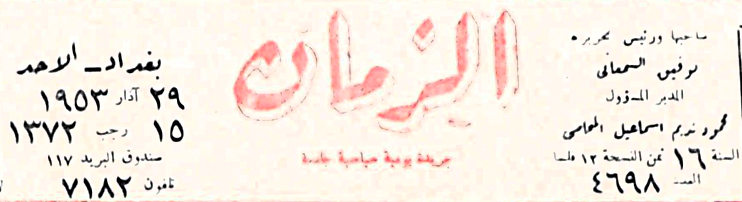 صاحبها ورئيس تحريره
توفيق السمعاني
المدير المسؤول
محمود نديم اسماعيل المحامي
السنة ١٦ ثمن النسخة ١٢ فلسا
العدد ٤٦٩٨
الزمان
جريدة يومية سياسية جامعة
بغداد ــ الاحد
٢٩ آذار ١٩٥٣
١٥ رجب ١٣٧٢
صندوق البريد ١١٧
تلفون ٧١٨٢